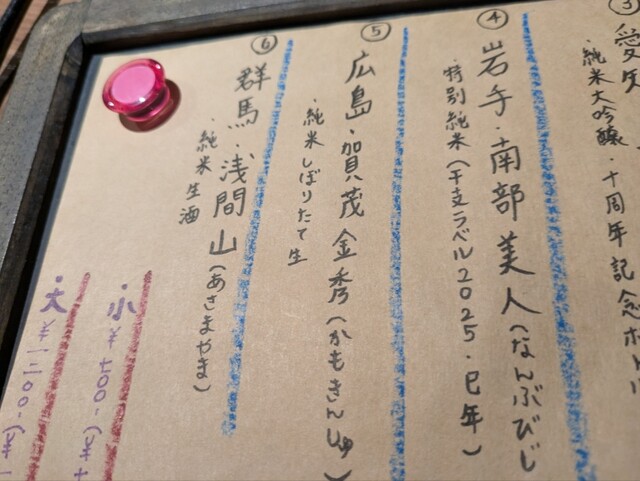 ③
愛知
・純米大吟醸・十周年記念ボトル
④
岩手・南部美人(なんぶびじ
・特別純米(干支ラベル2025・巳年)
⑤
広島・賀茂金秀(かもきんしゅ
・純米しぼりたて生
⑥
群馬・浅間山(あさまやま)
・純米生酒
・小
・大